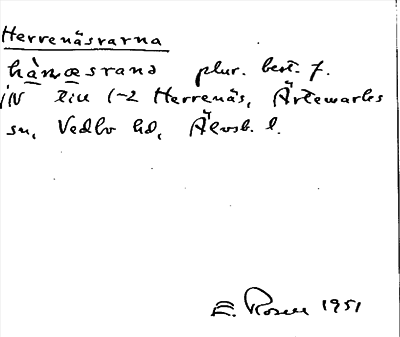 Herrenäsrarna
hànæsrana plur. best. f.
IN till 1-2 Herrenäs, Ärtemarks
sn, Vedbo hd, Älvsb. l.
E. Rosell 1951